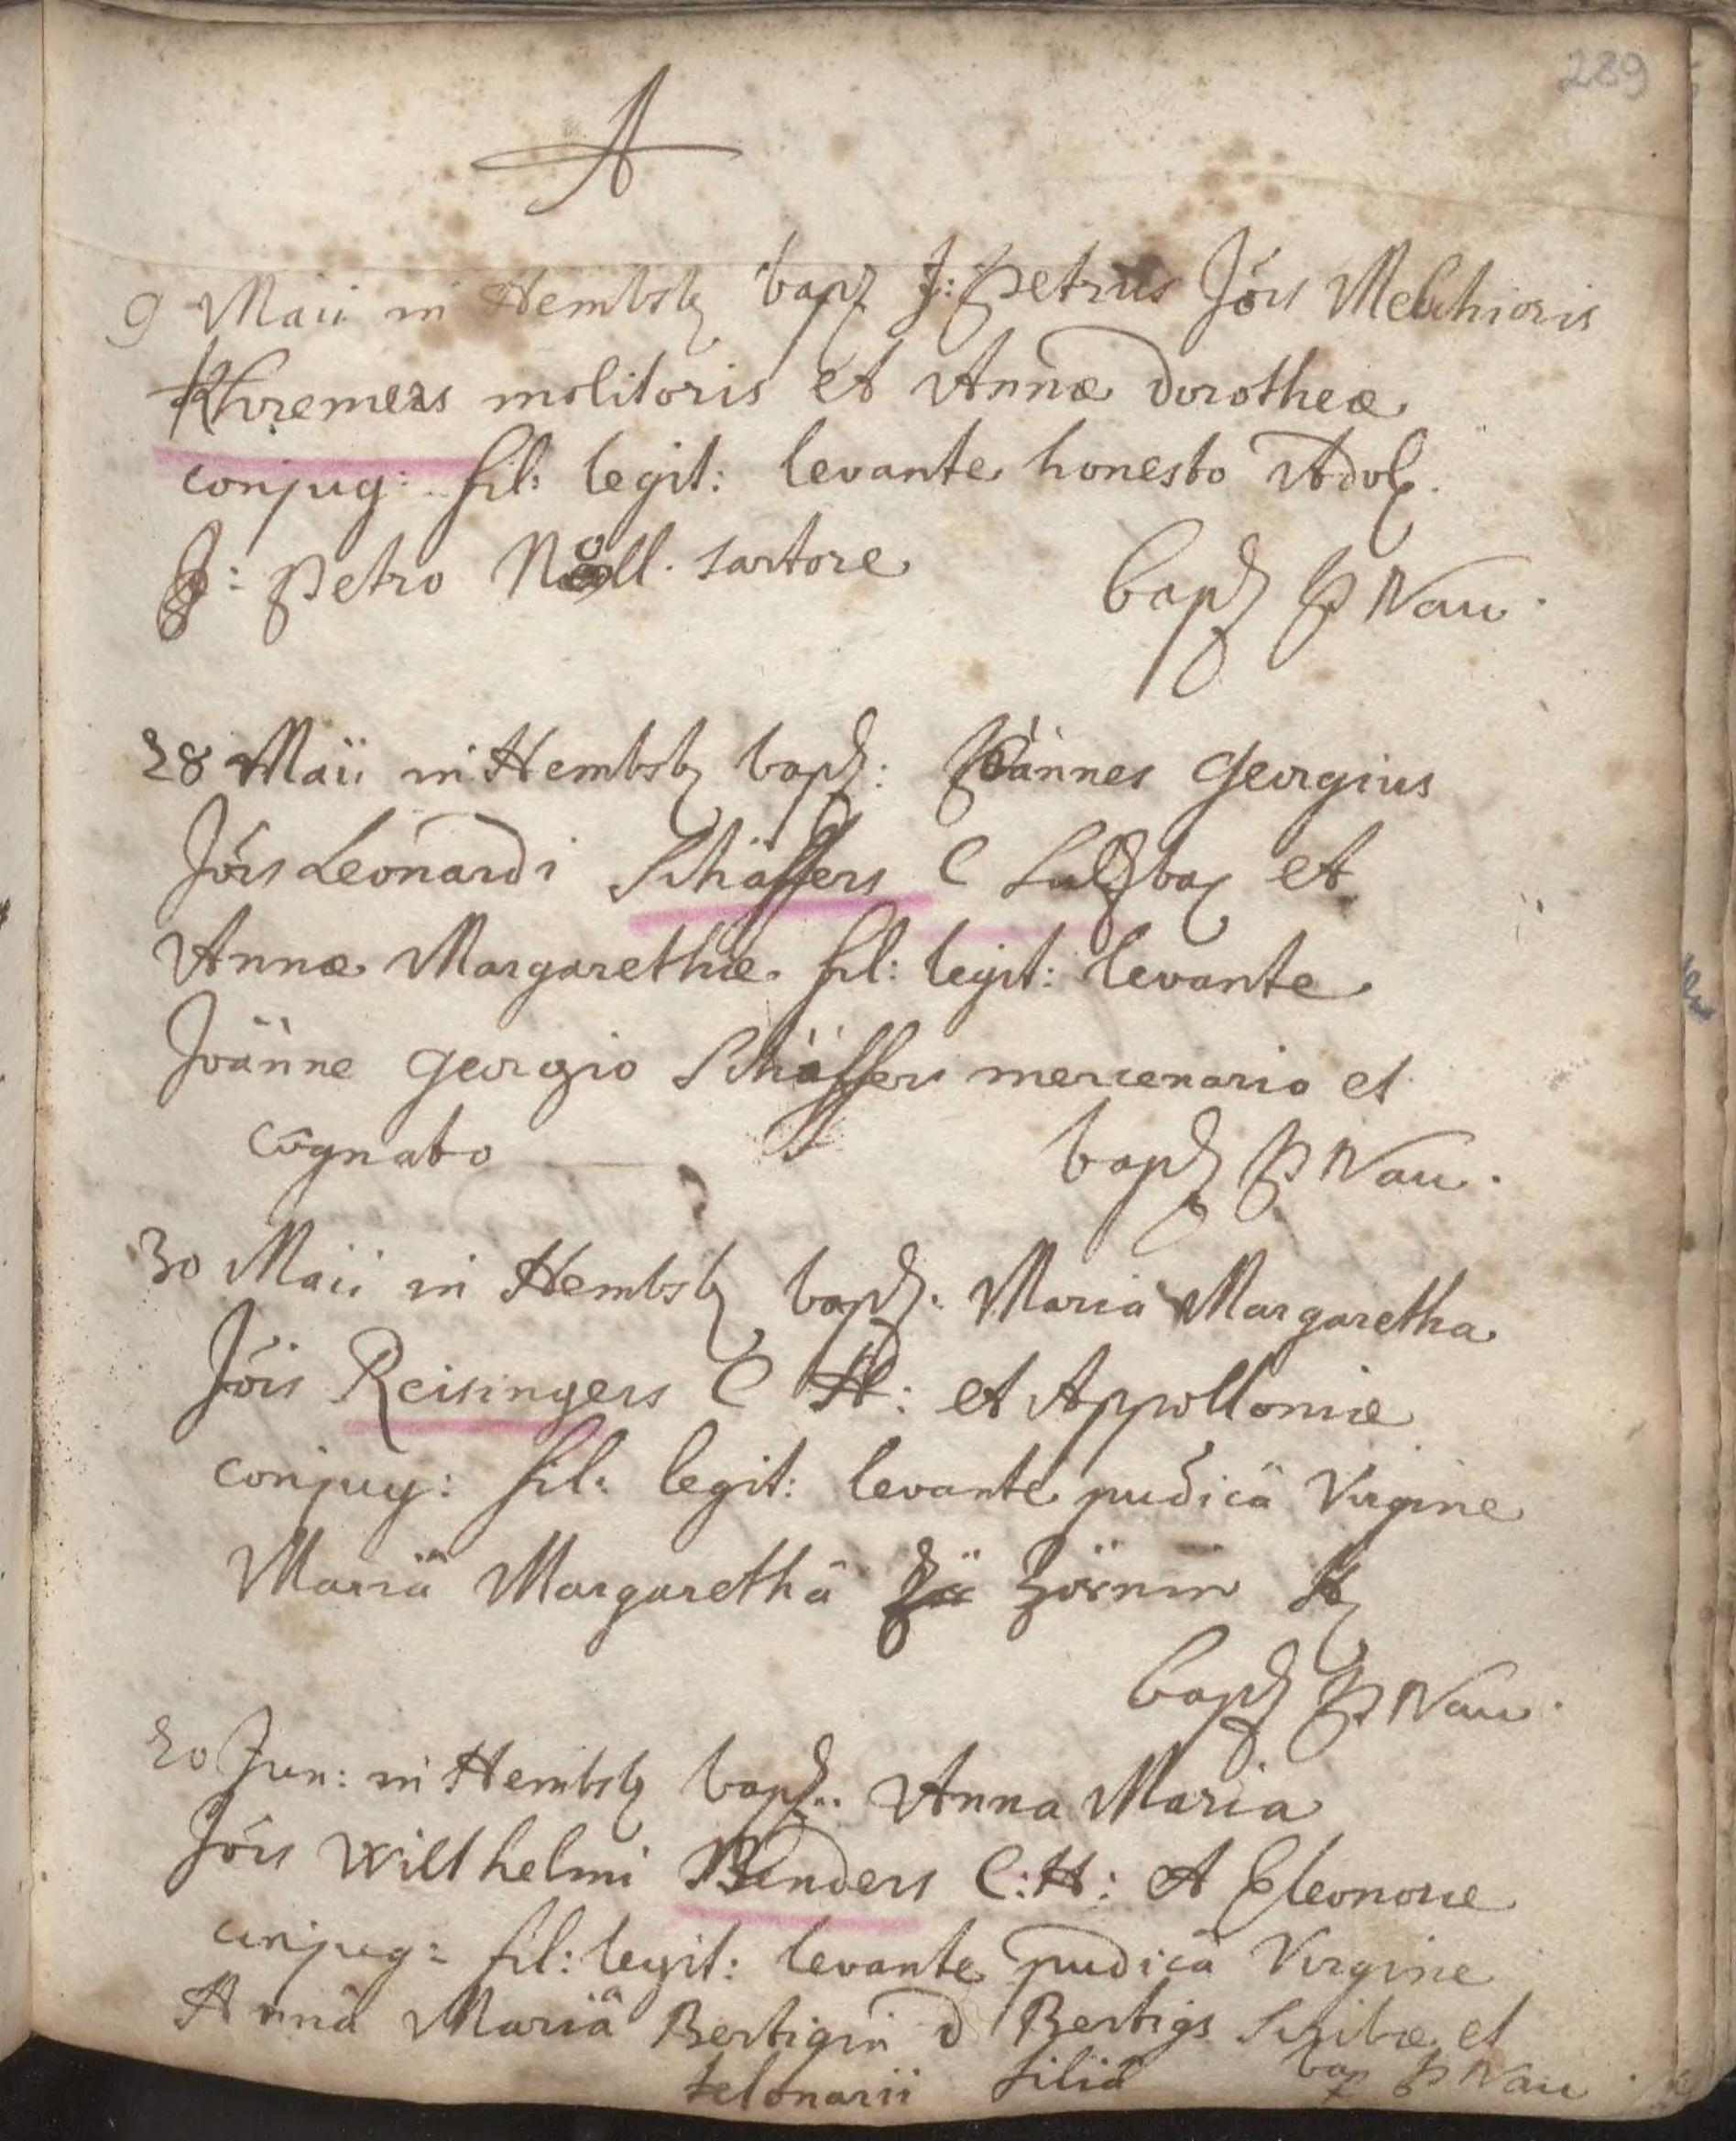 289
A
9 Maii in Hembsb bapt J: Petrus Jois Melchioris
Khremers molitoris et Annæ Dorotheæ
conjug: fil: legit: levante honesto Adol.
J: Petro Nöll. sartore
bapt P Nau.
28 Maii in Hembsb bapt: Joannes Georgius
Jois Leonardi Schäffers C Sultzbac et
Annæ Margarethæ fil: legit: levante
Joanne Georgio Schäffers mercenario et
cognato
bapt P Nau.
30 Maii in Hembsb bapt. Maria Margaretha
Jois Reisingers C H: et Appolloniæ
conjug: fil: legit: levante pudicâ Virgine
Mariâ Margarethâ Zörnin H
bapt P Nau.
20 Jun: in Hembsb bapt.. Anna Maria
Jois Wilthelmi Benders C:H: et Eleonoræ
conjug: fil: legit: levante pudicâ Virgine
Annâ Mariâ Bertigin D Bertigs Scribæ et
telonarii filiâ bap P Nau